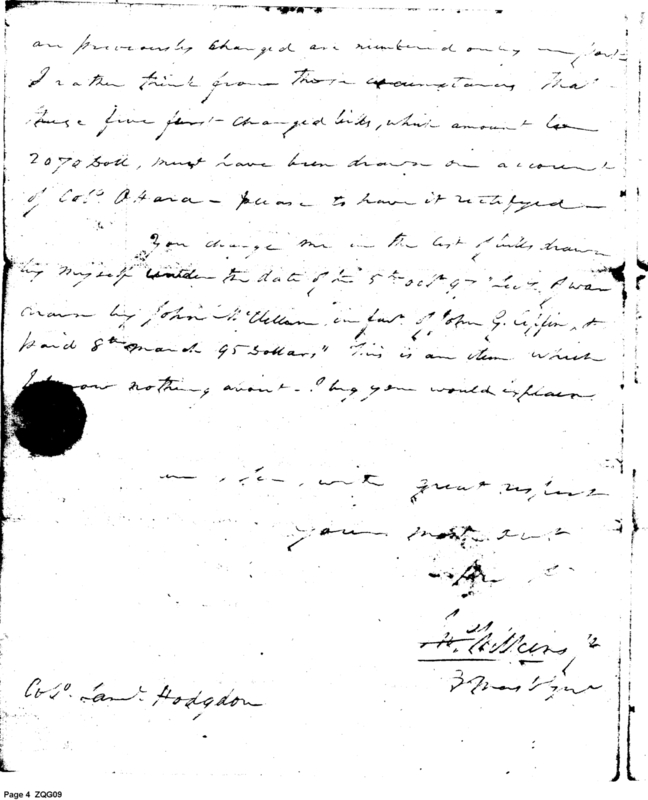 are previously charged are numbered only in part
I rather think from those circumstances that
these five first charged bills, which amount to
2070 Doll, must have been drawn on account
of Colo. O'Hara – please to have it rectifyed –
You charge me in the list of bills drawn
by myself under the date of the 5th Octr 97
drawn by John McClellan, in favr. of John G.
paid 8th March 95 Dollars" This is an item which
I know nothing about – I beg you would explain
with great respect
your most
Wilkins Jr
Colo. Saml. Hodgdon
Page 4 ZQG09